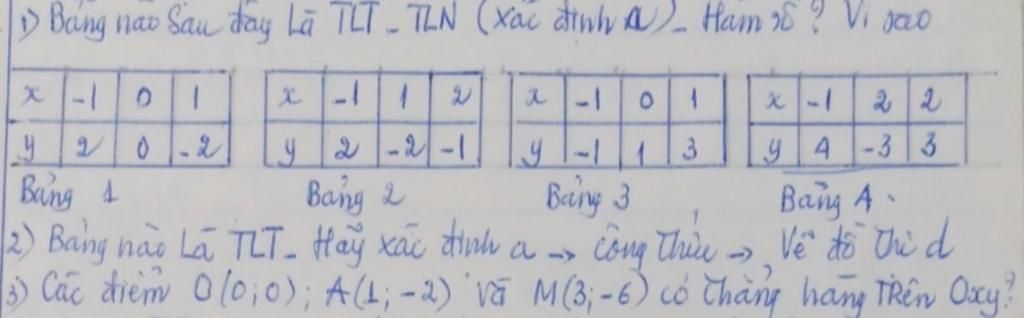 1) Bảng nào Sau đây Là TLT - TLN (xác định a) - Hàm số? Vì sao
x -1 0 1
y 2 0 -2
Bảng 1
x -1 1 2
y 2 -2 -1
Bảng 2
x -1 0 1
y -1 1 3
Bảng 3
x -1 2 2
y 4 -3 3
Bảng 4.
2) Bảng nào Là TLT - Hãy xác định a → Công Thức → Vẽ đồ Thị d
3) Các điểm O(0;0); A(1;-2) và M(3;-6) có Thẳng hàng TRên Oxy?